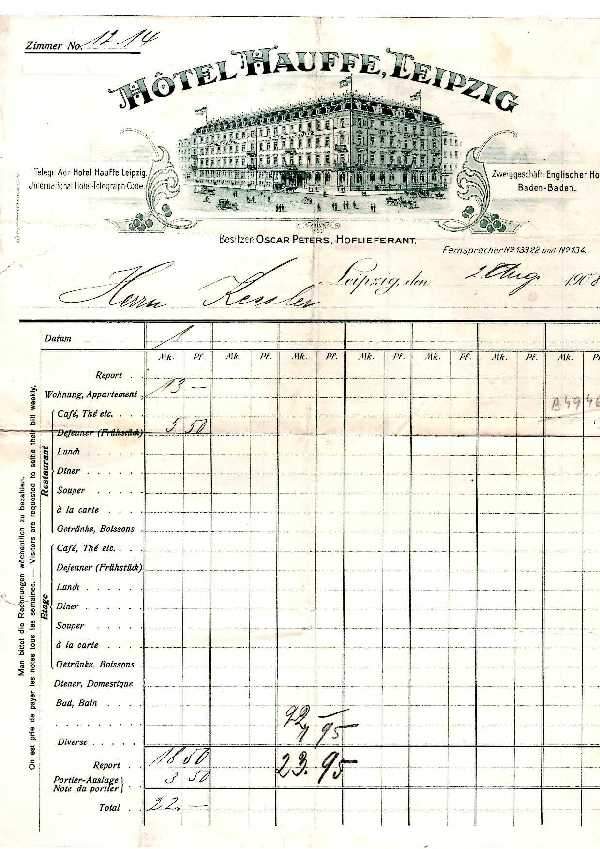 Zimmer No. 12.14
HÔTEL HAUFFE, LEIPZIG
Telegr. Adr. Hotel Hauffe Leipzig.
International Hotel-Telegraph-Code.
Zweiggeschäft: Englischer Ho
Baden-Baden.
Besitzer: OSCAR PETERS, HOFLIEFERANT.
Fernsprecher No 13322 und No 134.
Leipzig, den 2 Aug 1908
Herrn Kessler
Datum 1
Mk. Pf. Mk. Pf. Mk. Pf. Mk. Pf. Mk. Pf. Mk. Pf. Mk. P
Report . .
Wohnung, Appartement 13 —
A 49 46
Café, Thé etc. . . .
Dejeuner (Frühstück) 5 50
Lunch . . . . .
Diner . . . . .
Souper . . . . .
à la carte . . .
Getränke, Boissons
Restaurant
Café, Thé etc. . . .
Dejeuner (Frühstück)
Lunch . . . . . .
Diner . . . . . .
Souper . . . . .
à la carte . . .
Getränke, Boissons
Etage
Diener, Domestique
Bad, Bain . . . .
22 —
1 95
Diverse . . . . .
Report . . 18 50 23.95
Portier-Auslage 3 50
Note du portier
Total . . 22. —
Man bittet die Rechnungen wöchentlich zu bezahlen.
On est prié de payer les notes tous les semaines. — Visitors are requested to settle their bill weekly.